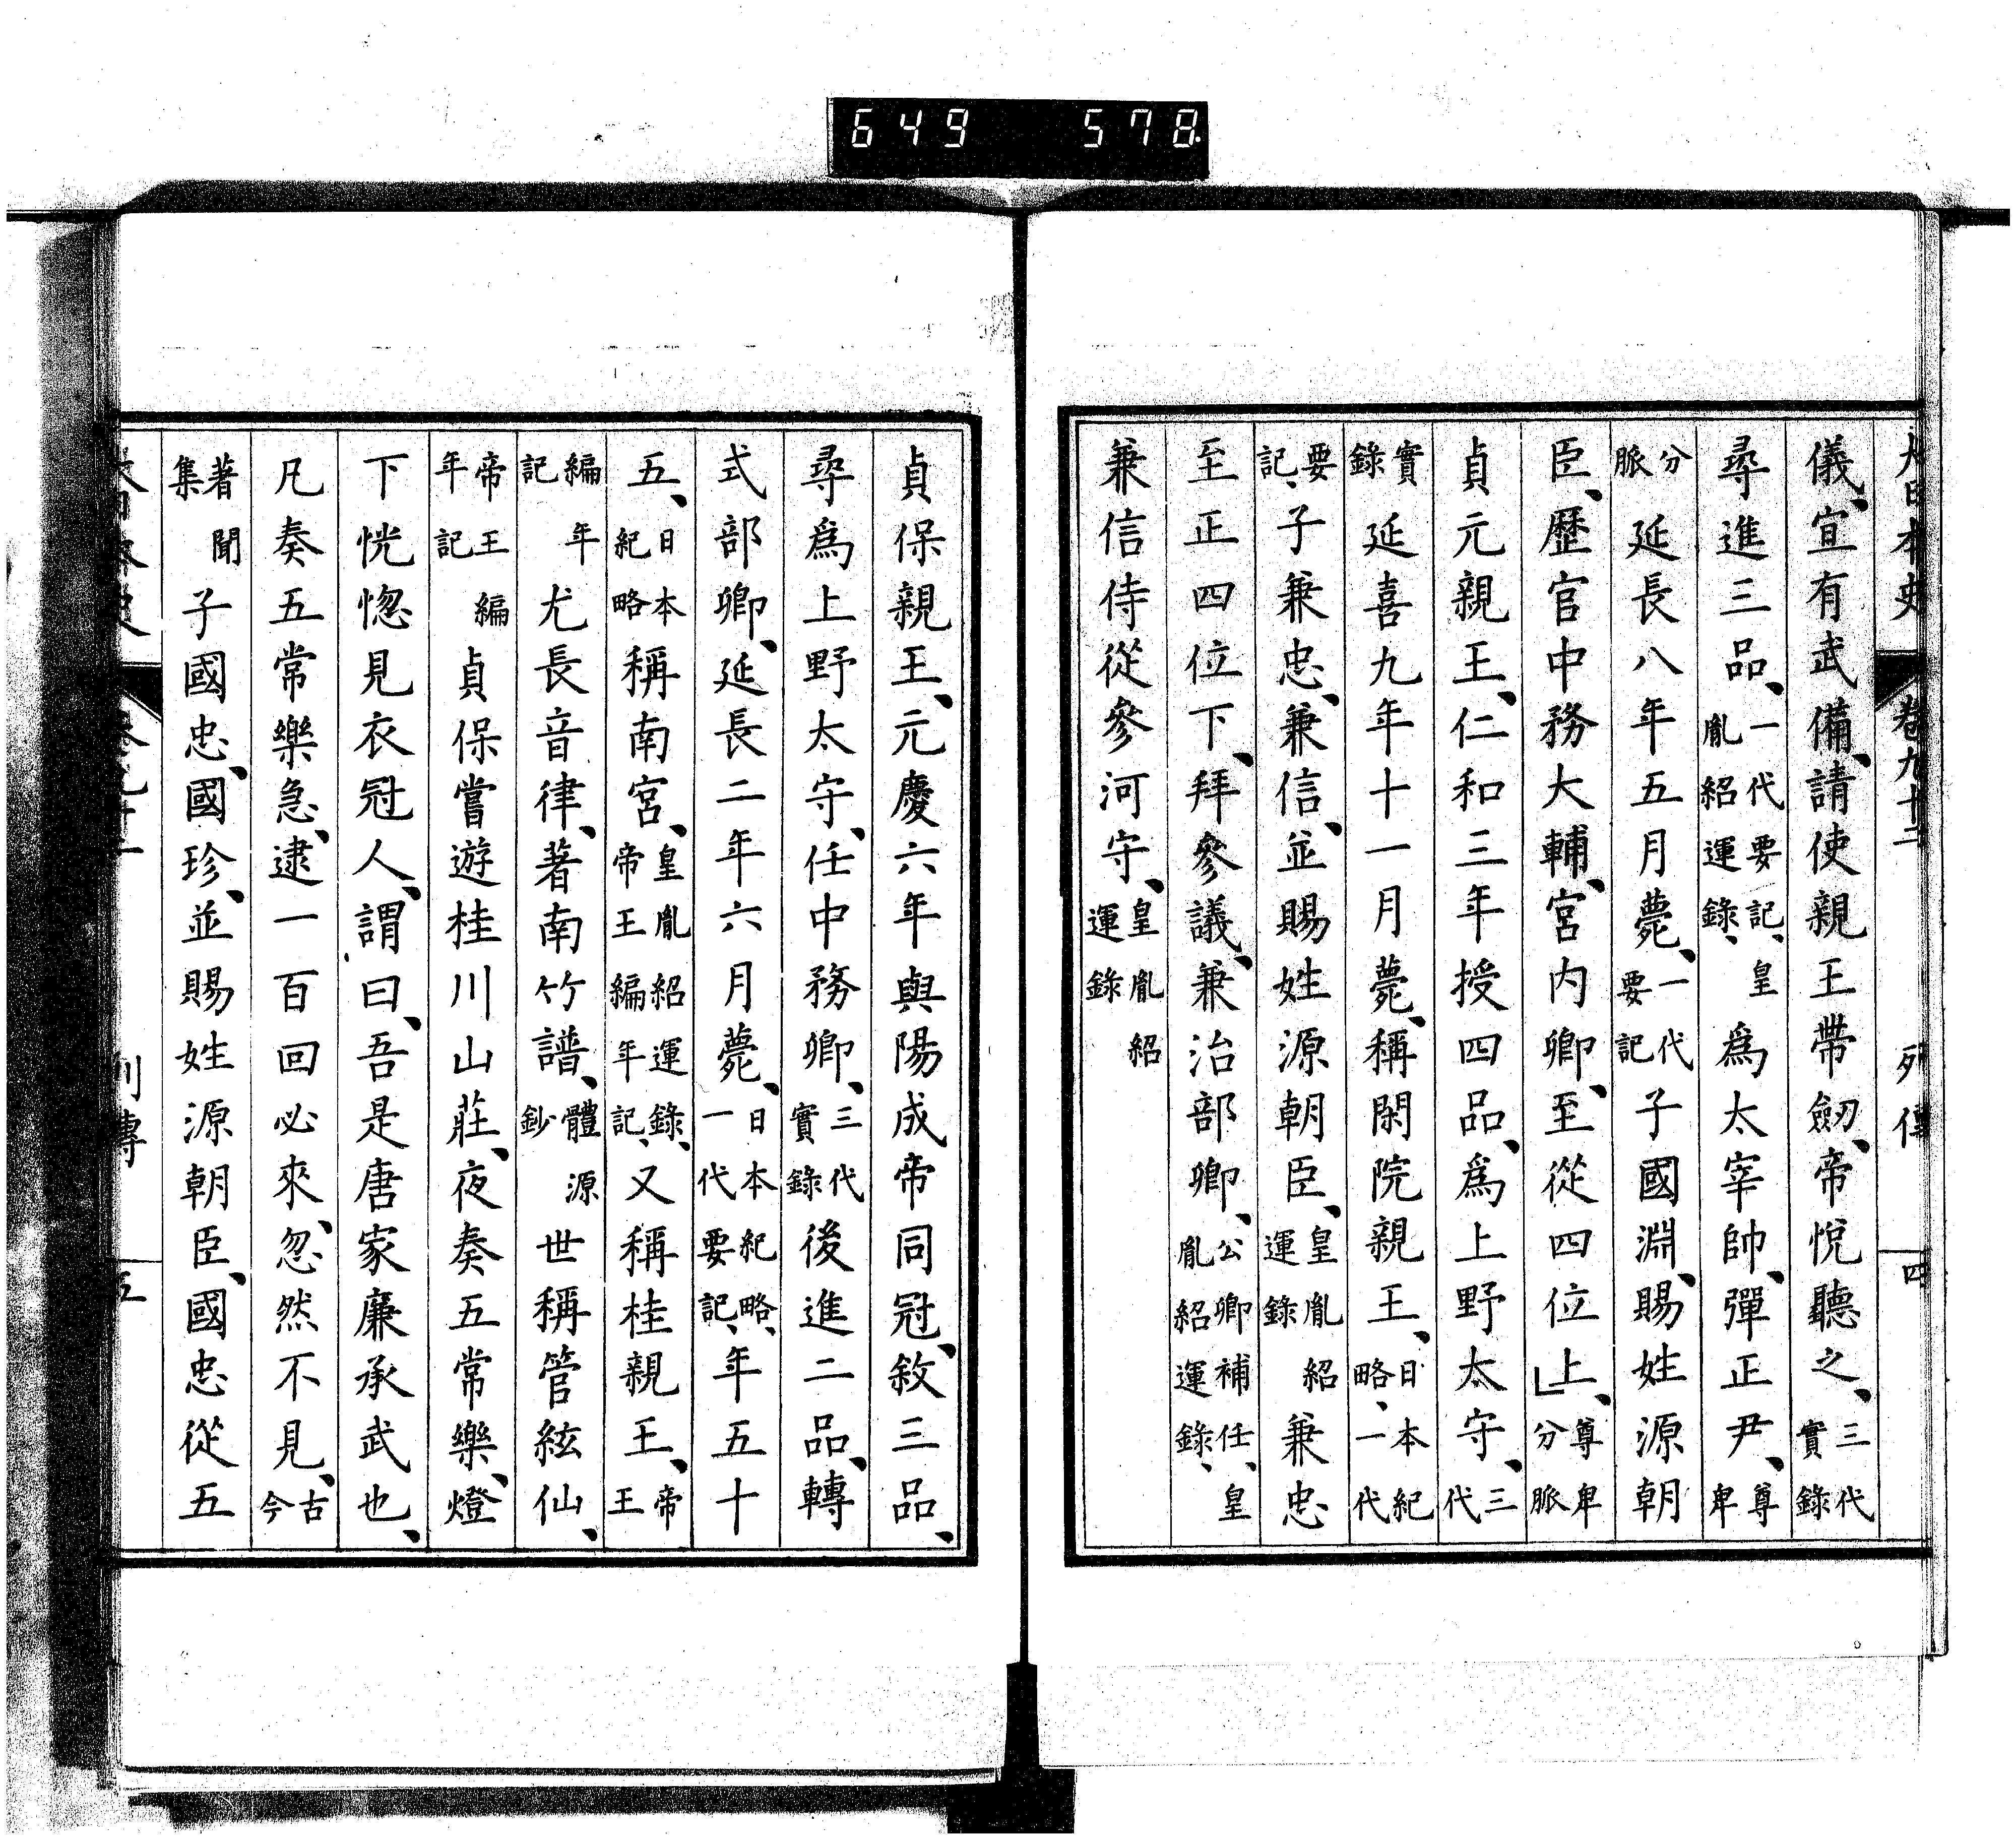 649 578
大日本史 卷九十二 列傳 四
儀、宜有武備、請使親王帶劒、帝悅聽之、三代實錄
尋進三品、一代要記、皇胤紹運錄、爲太宰帥、彈正尹、尊卑
分脈延長八年五月薨、一代要記子國淵、賜姓源朝
臣、歷官中務大輔、宮内卿、至從四位上、尊卑分脈
貞元親王、仁和三年授四品、爲上野太守、三代
實錄延喜九年十一月薨、稱閑院親王、日本紀略、一代
要記、子兼忠、兼信、並賜姓源朝臣、皇胤紹運錄兼忠
至正四位下、拜參議、兼治部卿、公卿補任、皇胤紹運錄、
兼信侍從參河守、皇胤紹運錄
貞保親王、元慶六年與陽成帝同冠、敘三品、
尋爲上野太守、任中務卿、三代實錄後進二品、轉
式部卿、延長二年六月薨、日本紀略、一代要記、年五十
五、日本紀略稱南宮、皇胤紹運錄、帝王編年記、又稱桂親王、帝王
編年記尤長音律、著南竹譜、體源鈔世稱管絃仙、
帝王編年記貞保嘗遊桂川山莊、夜奏五常樂、燈
下恍惚見衣冠人、謂曰、吾是唐家廉承武也、
凡奏五常樂急、逮一百回必來、忽然不見、古今
著聞集子國忠、國珍、並賜姓源朝臣、國忠從五
列傳 五